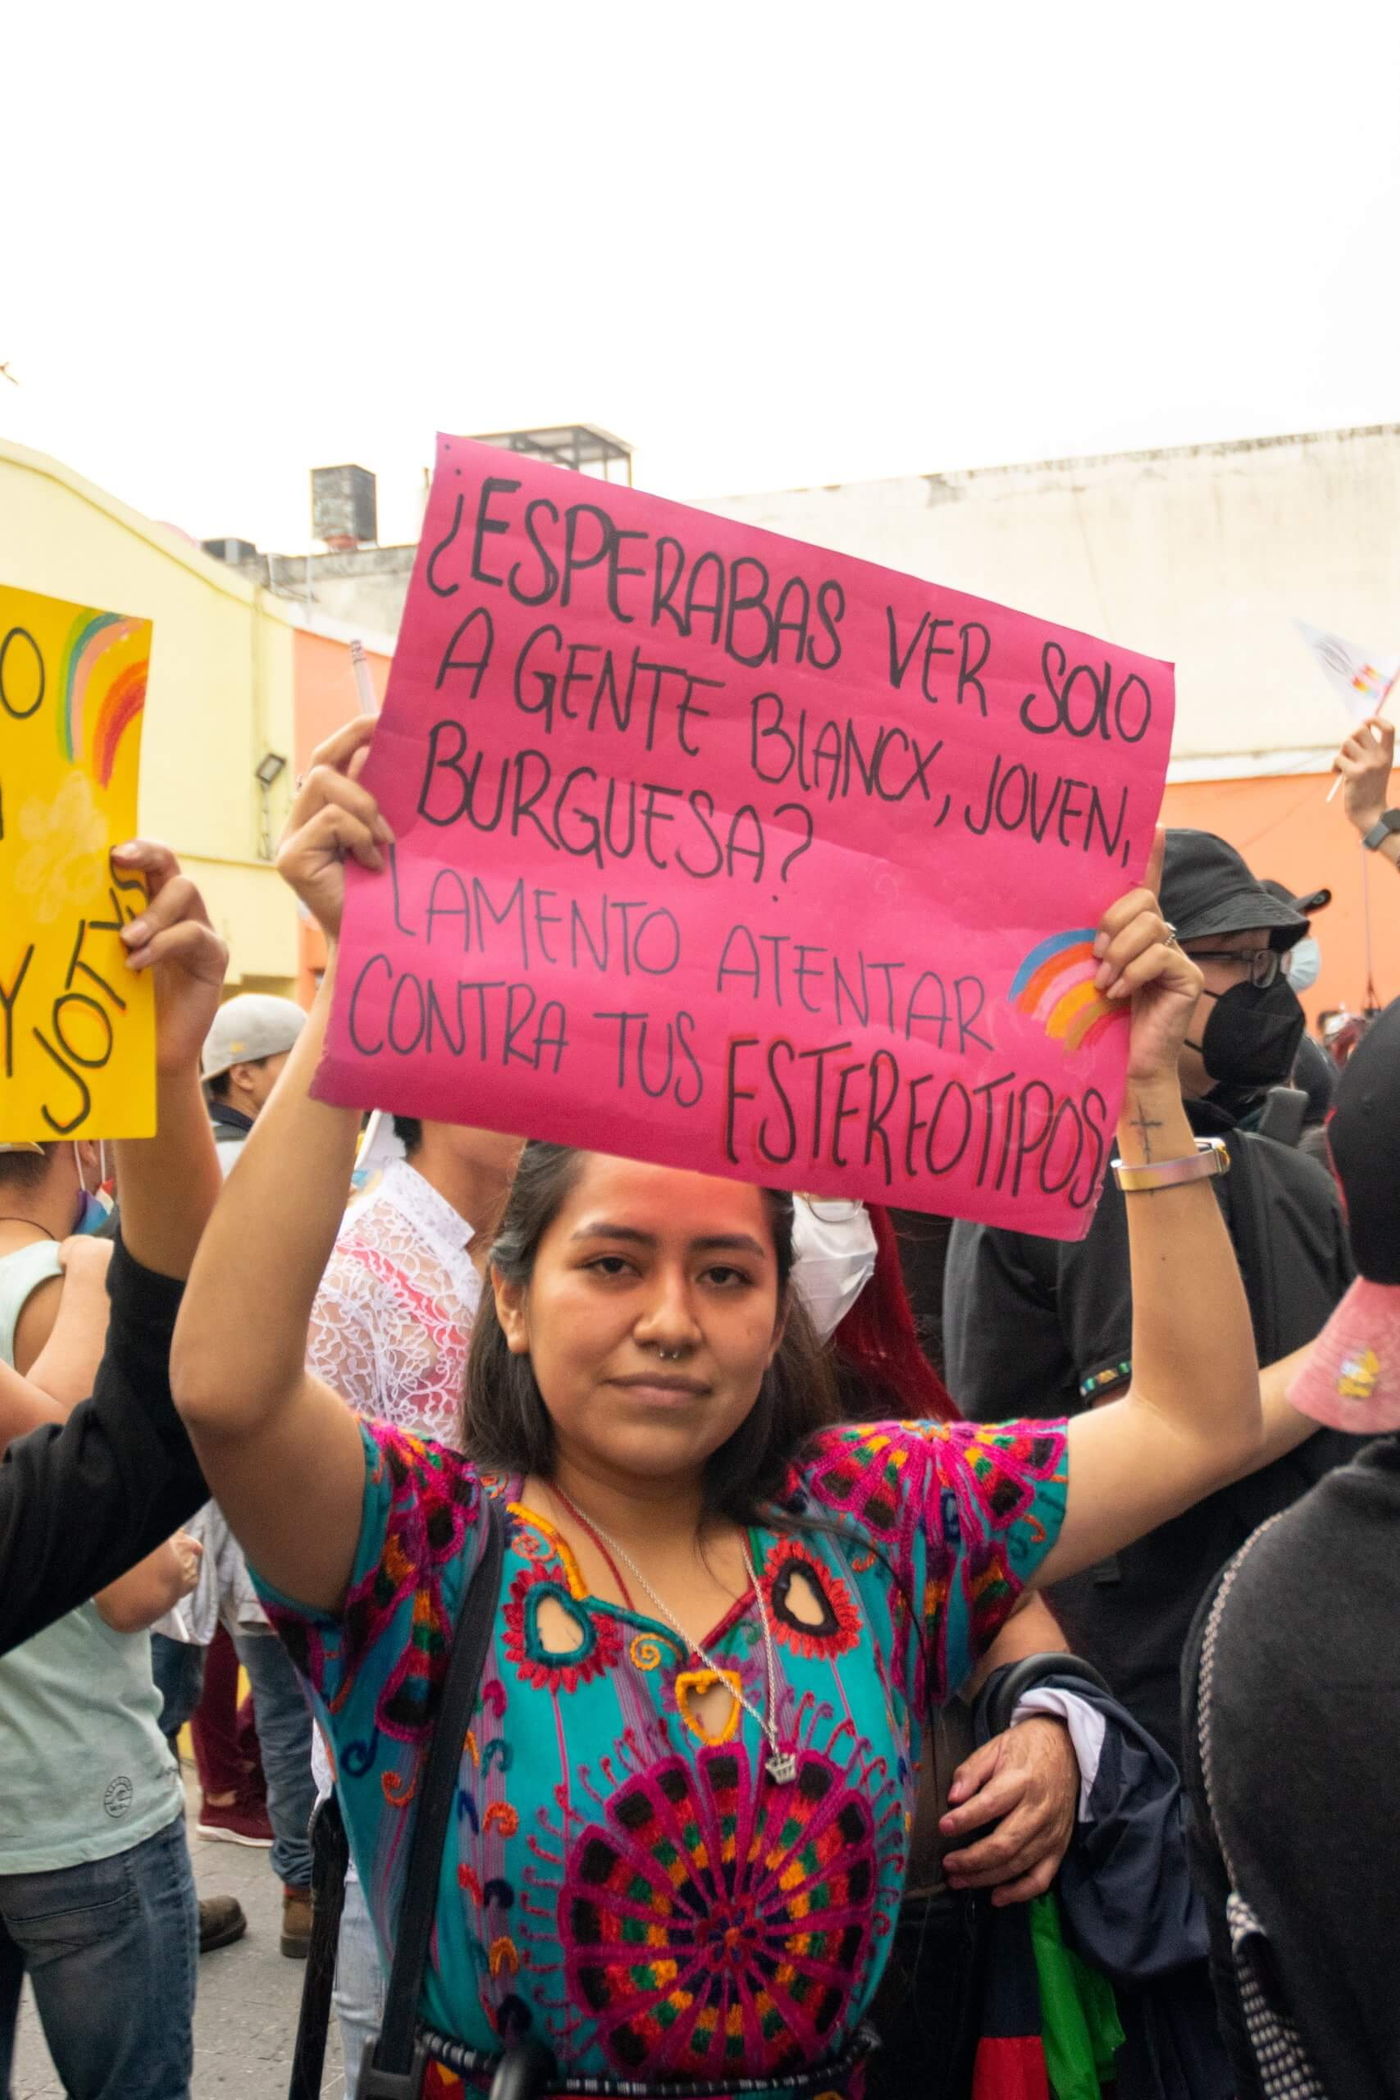 ¿ESPERABAS VER SOLO
A GENTE BLANCX, JOVEN,
BURGUESA?
LAMENTO ATENTAR
CONTRA TUS ESTEREOTIPOS
O
Y JOTYS